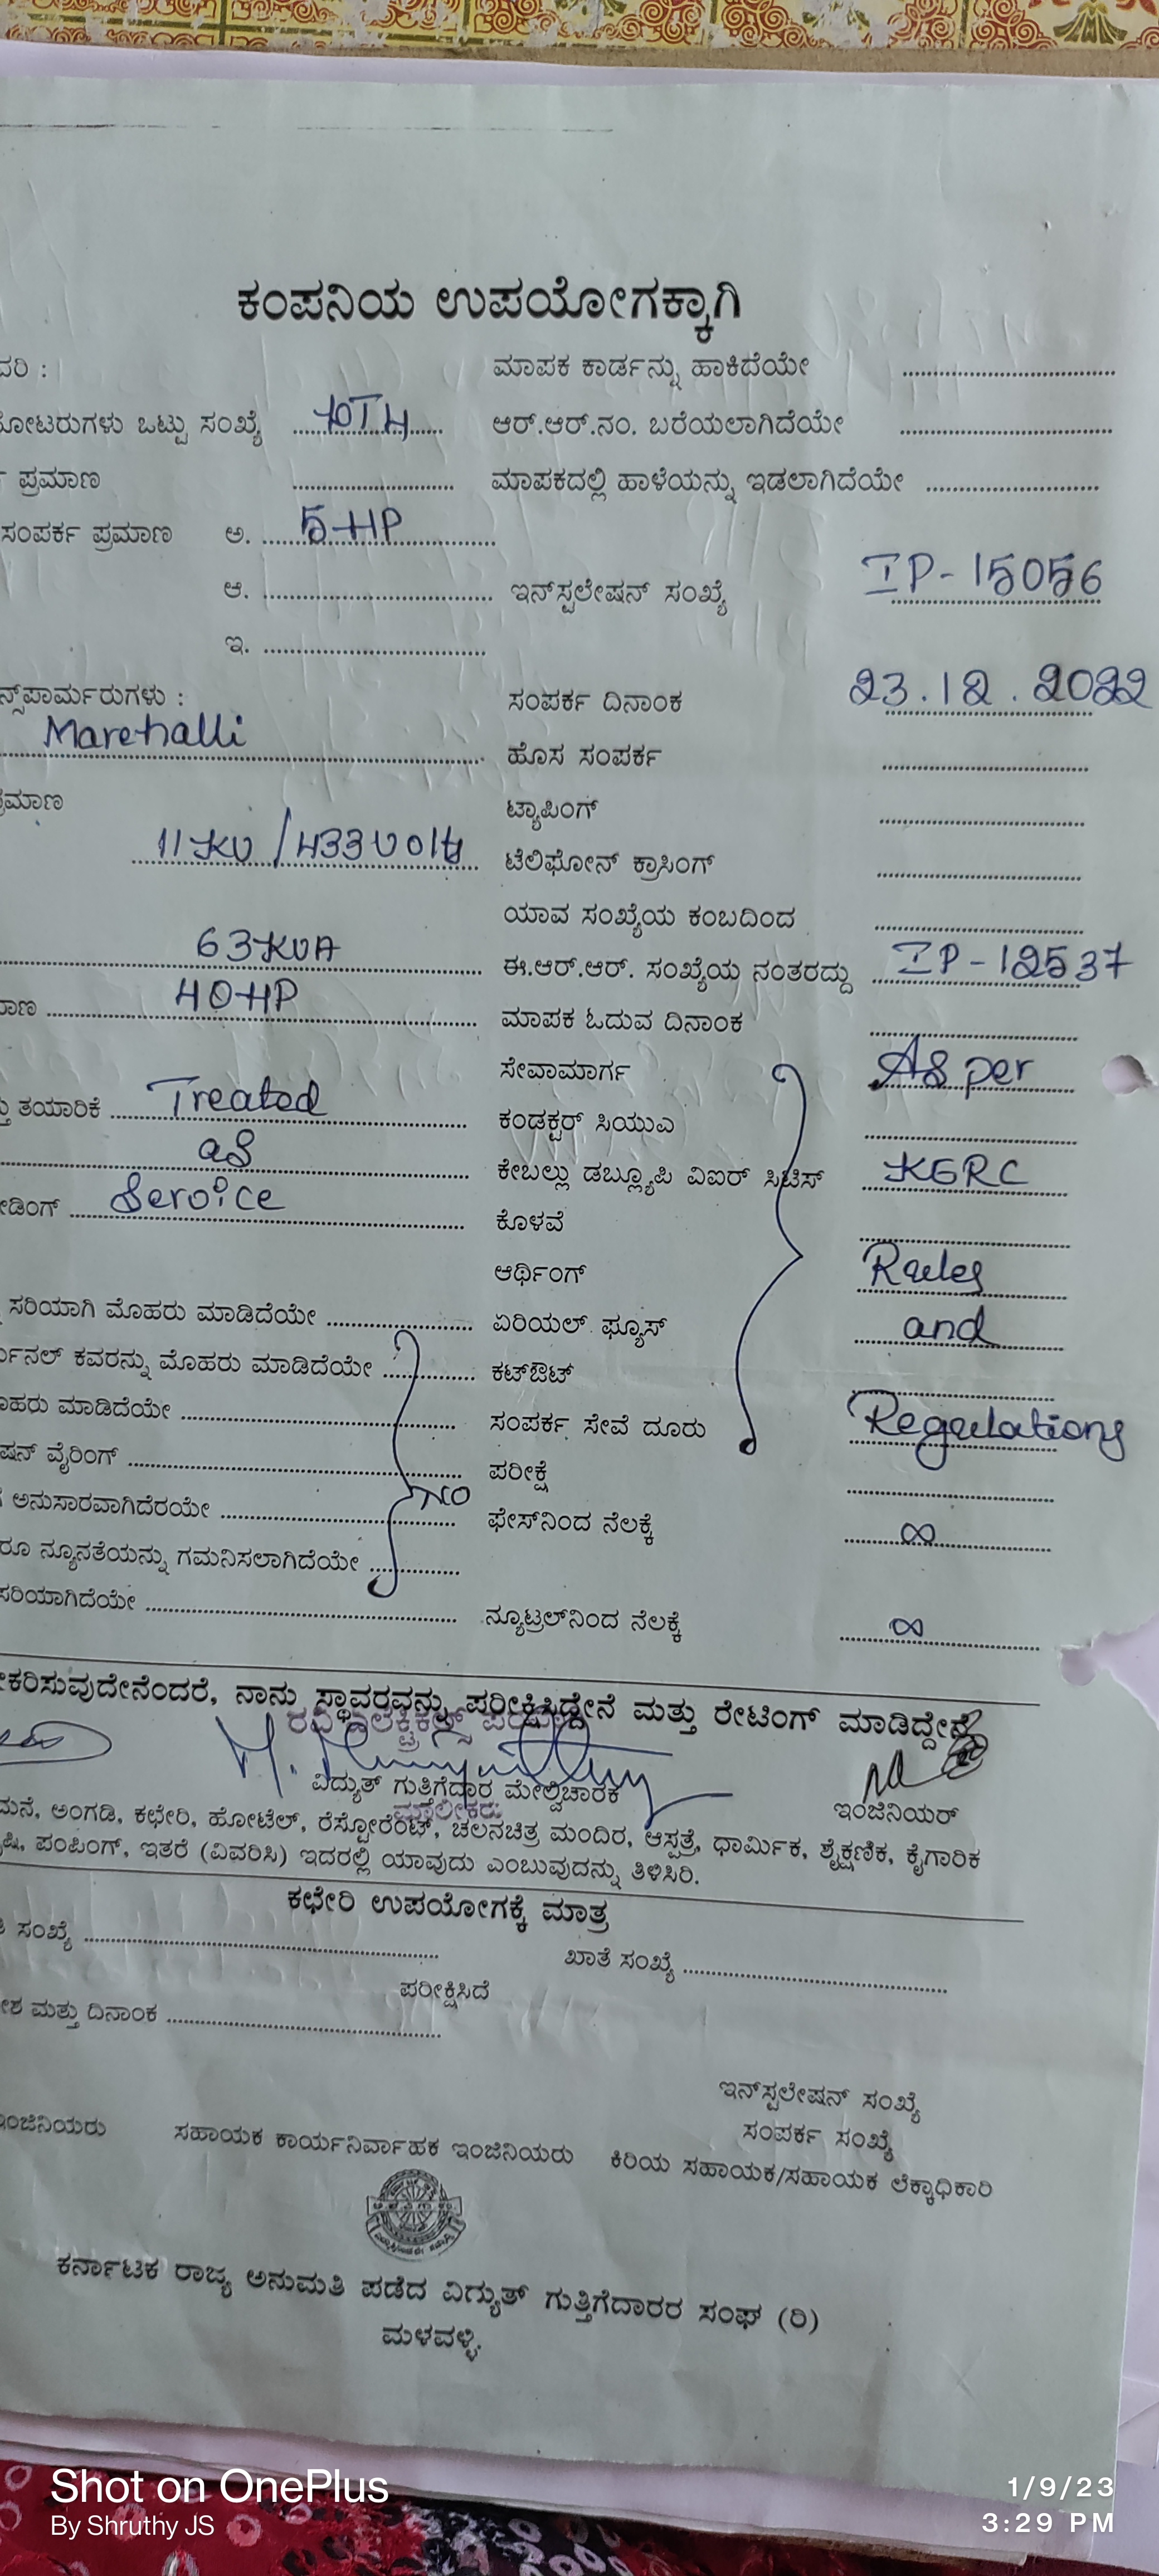 ಕಂಪನಿಯ ಉಪಯೋಗಕ್ಕಾಗಿ
ದರಿ : ಮಾಪಕ ಕಾರ್ಡನ್ನು ಹಾಕಿದೆಯೇ
ಮೋಟರುಗಳು ಒಟ್ಟು ಸಂಖ್ಯೆ ಆರ್.ಆರ್.ನಂ. ಬರೆಯಲಾಗಿದೆಯೇ
ಪ್ರಮಾಣ ಮಾಪಕದಲ್ಲಿ ಹಾಳೆಯನ್ನು ಇಡಲಾಗಿದೆಯೇ
ಸಂಪರ್ಕ ಪ್ರಮಾಣ ಅ. 5 HP
ಆ. ಇನ್‌ಸ್ಟಲೇಷನ್ ಸಂಖ್ಯೆ IP-15056
ಇ.
ನ್ಸ್‌ಪಾರ್ಮರುಗಳು : ಸಂಪರ್ಕ ದಿನಾಂಕ 23.12.2022
Marehalli ಹೊಸ ಸಂಪರ್ಕ
ಪ್ರಮಾಣ ಟ್ಯಾಪಿಂಗ್
11 KV / 433 Volts ಟೆಲಿಫೋನ್ ಕ್ರಾಸಿಂಗ್
ಯಾವ ಸಂಖ್ಯೆಯ ಕಂಬದಿಂದ
63 KVA ಈ.ಆರ್.ಆರ್. ಸಂಖ್ಯೆಯ ನಂತರದ್ದು IP-12537
ಮಾಣ 40 HP ಮಾಪಕ ಓದುವ ದಿನಾಂಕ
ಸೇವಾಮಾರ್ಗ As per
ತಯಾರಿಕೆ Treated ಕಂಡಕ್ಟರ್ ಸಿಯುಎ
as ಕೇಬಲ್ಲು ಡಬ್ಲ್ಯೂಪಿ ವಿಐರ್ ಸಿಟಿಸ್ KERC
ಡಿಂಗ್ Service ಕೊಳವೆ
ಆರ್ಥಿಂಗ್ Rules
ಸರಿಯಾಗಿ ಮೊಹರು ಮಾಡಿದೆಯೇ ಏರಿಯಲ್ ಫ್ಯೂಸ್ and
ರ್ಮಿನಲ್ ಕವರನ್ನು ಮೊಹರು ಮಾಡಿದೆಯೇ ಕಟ್‌ಔಟ್
ಮೊಹರು ಮಾಡಿದೆಯೇ ಸಂಪರ್ಕ ಸೇವೆ ದೂರು Regulations
ಷನ್ ವೈರಿಂಗ್ ಪರೀಕ್ಷೆ
ಅನುಸಾರವಾಗಿದೆರಯೇ NO ಫೇಸ್‌ನಿಂದ ನೆಲಕ್ಕೆ ∞
ರೂ ನ್ಯೂನತೆಯನ್ನು ಗಮನಿಸಲಾಗಿದೆಯೇ
ಸರಿಯಾಗಿದೆಯೇ ನ್ಯೂಟ್ರಲ್‌ನಿಂದ ನೆಲಕ್ಕೆ ∞
ಕರಿಸುವುದೇನೆಂದರೆ, ನಾನು ಸ್ಥಾವರವನ್ನು ಪರೀಕ್ಷಿಸಿದ್ದೇನೆ ಮತ್ತು ರೇಟಿಂಗ್ ಮಾಡಿದ್ದೇನೆ
ವಿದ್ಯುತ್ ಗುತ್ತಿಗೆದಾರ ಮೇಲ್ವಿಚಾರಕ ಇಂಜಿನಿಯರ್
ಮಾಲೀಕರು
ಮನೆ, ಅಂಗಡಿ, ಕಛೇರಿ, ಹೋಟೆಲ್, ರೆಸ್ಟೋರೆಂಟ್, ಚಲನಚಿತ್ರ ಮಂದಿರ, ಆಸ್ಪತ್ರೆ, ಧಾರ್ಮಿಕ, ಶೈಕ್ಷಣಿಕ, ಕೈಗಾರಿಕ
ಷಿ, ಪಂಪಿಂಗ್, ಇತರೆ (ವಿವರಿಸಿ) ಇದರಲ್ಲಿ ಯಾವುದು ಎಂಬುವುದನ್ನು ತಿಳಿಸಿರಿ.
ಕಛೇರಿ ಉಪಯೋಗಕ್ಕೆ ಮಾತ್ರ
ಸಂಖ್ಯೆ ಖಾತೆ ಸಂಖ್ಯೆ
ಪರೀಕ್ಷಿಸಿದೆ
ಶ ಮತ್ತು ದಿನಾಂಕ
ಇನ್‌ಸ್ಟಲೇಷನ್ ಸಂಖ್ಯೆ
ಸಂಪರ್ಕ ಸಂಖ್ಯೆ
ಇಂಜಿನಿಯರು ಸಹಾಯಕ ಕಾರ್ಯನಿರ್ವಾಹಕ ಇಂಜಿನಿಯರು ಕಿರಿಯ ಸಹಾಯಕ/ಸಹಾಯಕ ಲೆಕ್ಕಾಧಿಕಾರಿ
ಕರ್ನಾಟಕ ರಾಜ್ಯ ಅನುಮತಿ ಪಡೆದ ವಿದ್ಯುತ್ ಗುತ್ತಿಗೆದಾರರ ಸಂಘ (ರಿ)
ಮಳವಳ್ಳಿ.
Shot on OnePlus
By Shruthy JS
1/9/23
3:29 PM